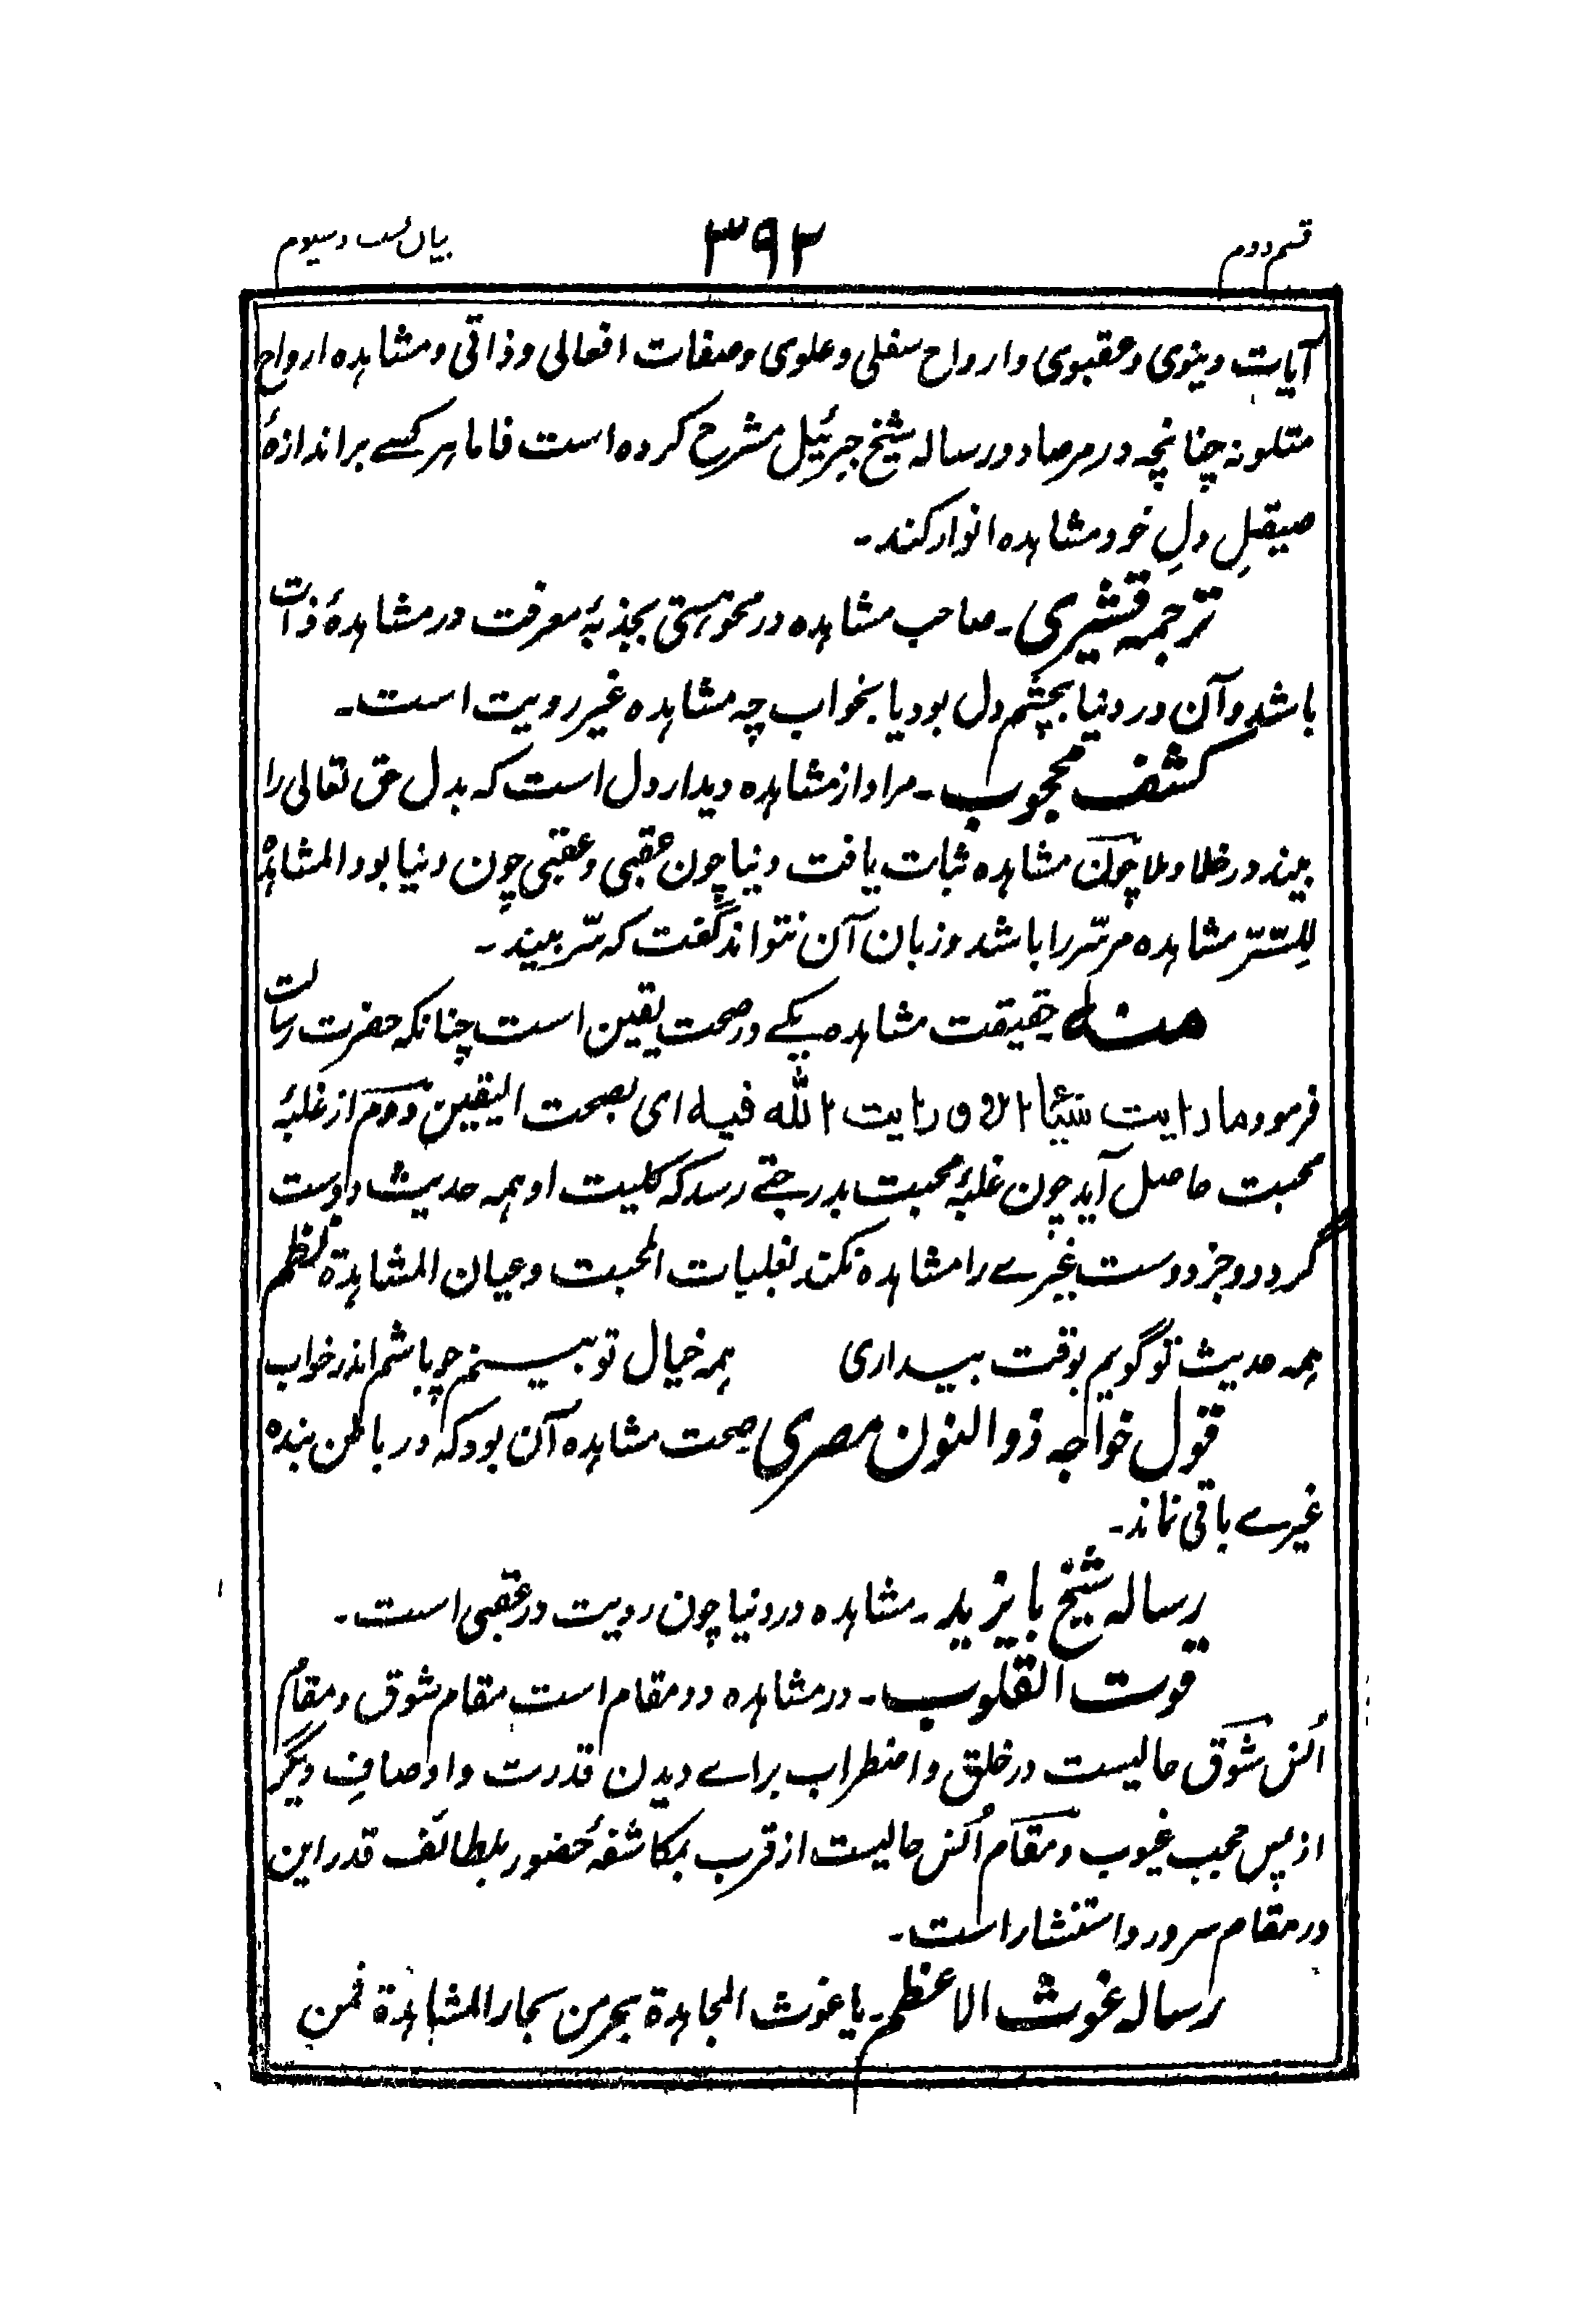 قسم دوم ۳۹۲ بیان بست و سیوم
آیات دینوی و عقبوی و ارواح سفلی و علوی و صفات افعالی و ذاتی و مشاہدہ ارواح
متلونہ چنانچہ در مرصاد و رسالہ شیخ جبرئیل مشرح کردہ است فاما ہر کسے بر اندازۂ
صیقلِ دلِ خود مشاہدہ انوار کند۔
ترجمہ قشیری۔ صاحب مشاہدہ در محو ہستی بجذبۂ معرفت در مشاہدۂ ذات
باشد و آن در دنیا بچشم دل بود یا بخواب چہ مشاہدہ غیر رویت است۔
کشف محجوب۔ مراد از مشاہدہ دیدار دل است کہ بدل حق تعالی را
بیند در خلا و ملا چون مشاہدہ ثبات یافت دنیا چون عقبی و عقبی چون دنیا بود المشاہدۃ
لِلسّرّ مشاہدہ مر سّر را باشد و زبان آن نتواند گفت کہ سّر بیند۔
منہ حقیقت مشاہدہ یکے در صحت یقین است چنانکہ حضرت رسالت
فرمود ما رایت شیئا الا و رایت الله فیہ ای بصحت الیقین دوم از غلبۂ
محبت حاصل آید چون غلبۂ محبت بدرجتے رسد کہ کلیت او ہمہ حدیث دوست
گردد و جز دوست غیرے را مشاہدہ نکند لغلبات المحبت و عیان المشاہدۃ نظم
ہمہ حدیث تو گویم بوقت بیداری ہمہ خیال تو بینم چو باشم اندر خواب
قول خواجہ ذوالنون مصری صحت مشاہدہ آن بود کہ در باطن بندہ
غیرے باقی نماند۔
رسالہ شیخ بایزید۔ مشاہدہ در دنیا چون رویت در عقبی است۔
قوت القلوب۔ در مشاہدہ دو مقام است مقام شوق و مقام
اُنس شوق حالیست در خلق و اضطراب براے دیدن قدرت و اوصافِ دیگر
از پس حجب غیوب و مقام اُنس حالیست از قرب بمکاشفۂ حضور بلطائف قدر این
در مقام سرور و استنشار است۔
رسالہ غوث الاعظم۔ یا غوث المجاہدۃ بحر من بحار المشاہدۃ فمن